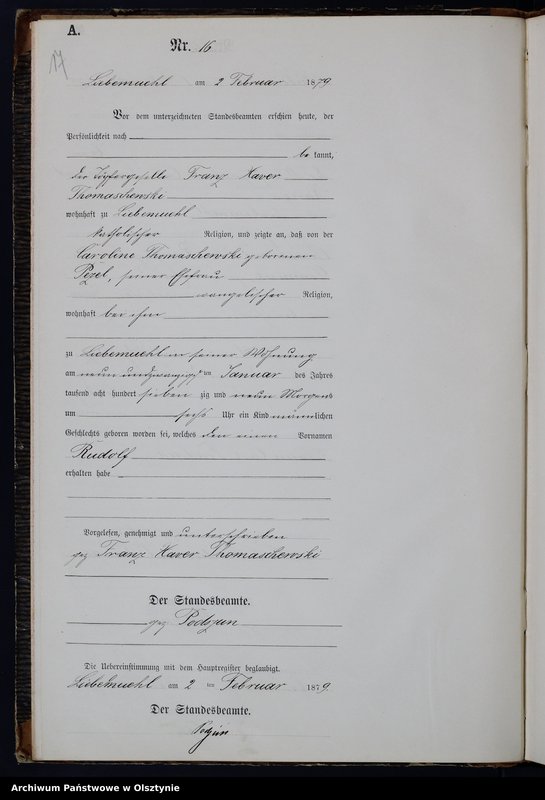 A.
17
Nr. 16
Liebemuehl am 2 Februar 1879
Vor dem unterzeichneten Standesbeamten erschien heute, der
Persönlichkeit nach
be kannt,
der Töpfergeselle Franz Xaver
Thomaschewski
wohnhaft zu Liebemuehl
katholischer Religion, und zeigte an, daß von der
Caroline Thomaschewski geborenen
Pezel, seiner Ehefrau
evangelischer Religion,
wohnhaft bei ihm
zu Liebemuehl in seiner Wohnung
am neun und zwanzigsten Januar des Jahres
tausend acht hundert sieben zig und neun Morgens
um sechs Uhr ein Kind männlichen
Geschlechts geboren worden sei, welches den einen Vornamen
Rudolf
erhalten habe
Vorgelesen, genehmigt und unterschrieben
gez Franz Xaver Thomaschewski
Der Standesbeamte.
gez Podszun
Die Uebereinstimmung mit dem Hauptregister beglaubigt.
Liebemuehl am 2 ten Februar 1879
Der Standesbeamte.
Archiwum Państwowe w Olsztynie